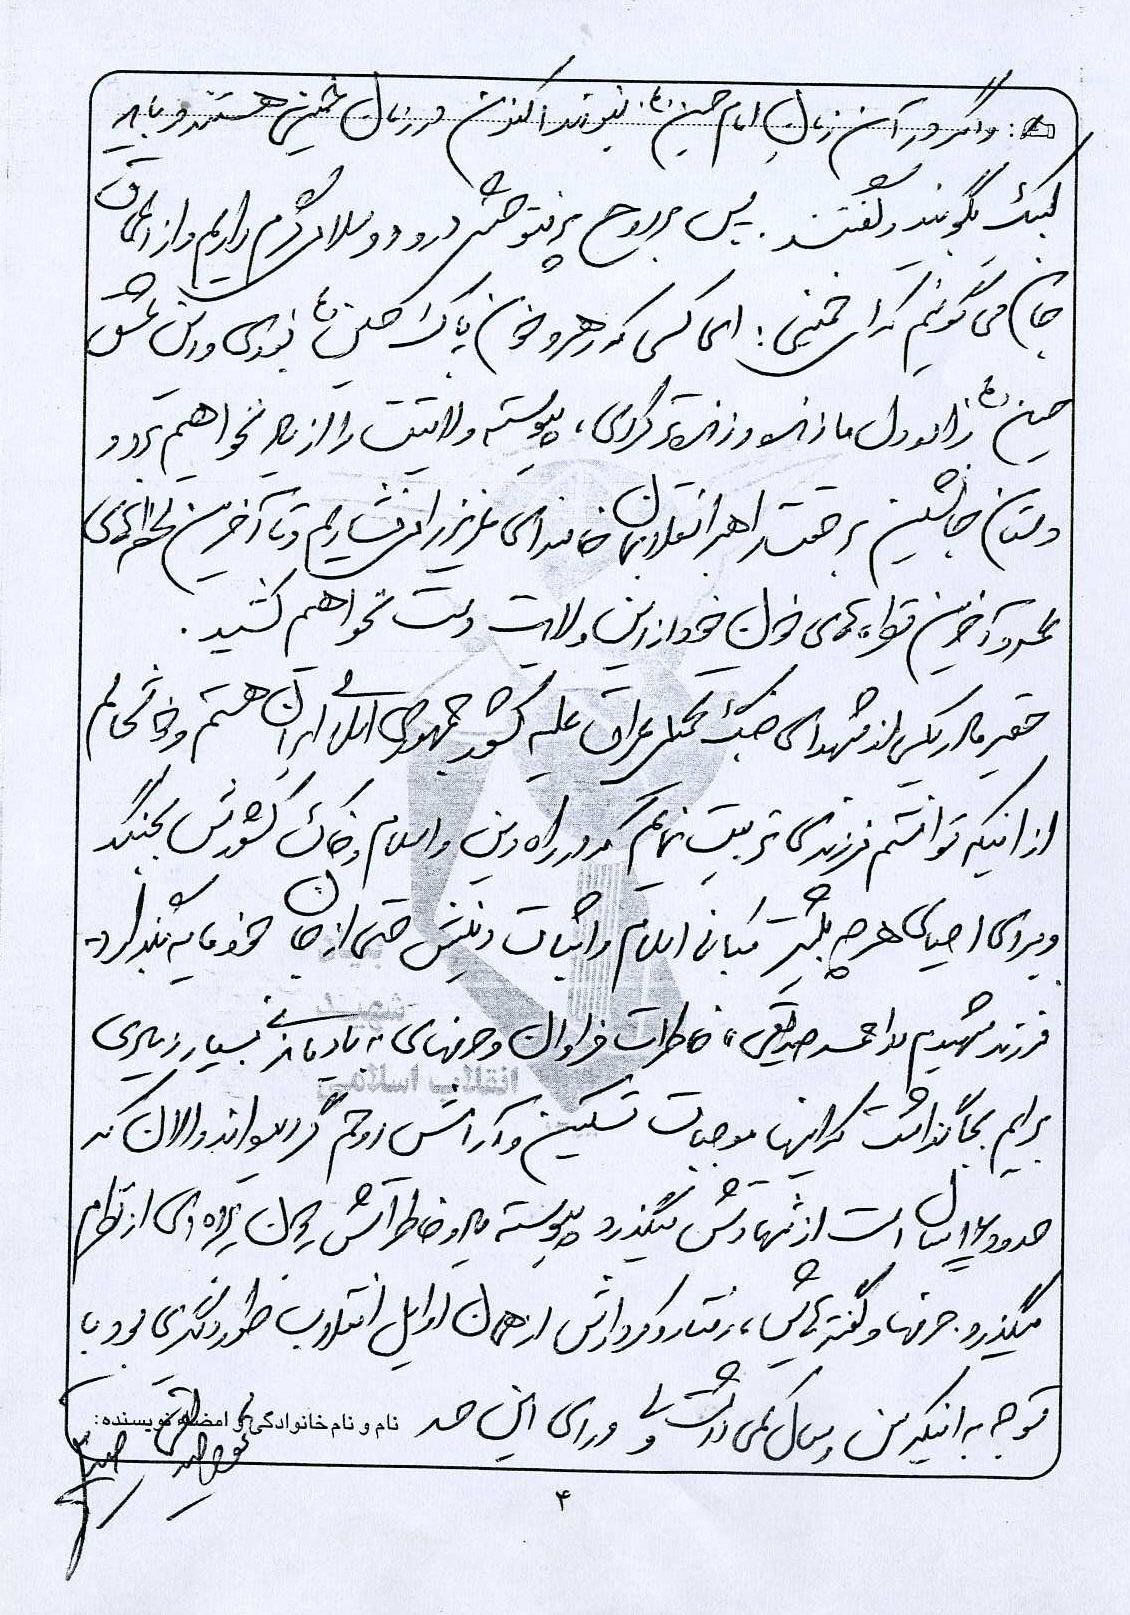 : و اگر در آن زمان امام حسین (ع) نبودند اکنون در زمان خمینی هستند و باید
لبیک بگویند و گفتند. پس بر روح پرفتوحش درود و سلامی گرم داریم و از اعماق
جان می گوئیم که ای خمینی: ای کسی که رهرو خون پاک حسین (ع) بودی و این عشق
حسین (ع) را در دل ما زنده و زنده تر کردی، پیوسته ولایتت را از یاد نخواهیم برد و
دستان جانشین بر حقت رهبر انقلابمان خامنه ای عزیز را می فشاریم و تا آخرین لحظه ی
عمر و آخرین قطره های خون خود از این ولایت دست نخواهیم کشید.
حقیر مادر یکی از شهدای جنگ تحمیلی عراق علیه کشور جمهوری اسلامی ایران هستم و خوشحالم
از اینکه توانستم فرزندی تربیت نمایم که در راه دین و اسلام و خاک کشورش بجنگد
و برای احیای هر چه بیشتر مبانی اسلام و اثبات دینش حتی از جان خود مایه بگذارد.
فرزند شهیدم احمد صدیقی، خاطرات فراوان و حرفهای به یاد ماندنی بسیار زیادی
برایم بجا گذاشت که اینها موجبات تسکین و آرامش روحم گردیده اند و الان که
حدود ۱۶ سال است از شهادتش میگذرد پیوسته یاد و خاطراتش چون پرده ای از نظرم
میگذرد. حرفها و گفته هایش، رفتار و کردارش از همان اوایل انقلاب طور دیگری بود با
توجه به اینکه سن و سال کمی داشت ولی ورای این حد
نام و نام خانوادگی و امضاء نویسنده:
۴